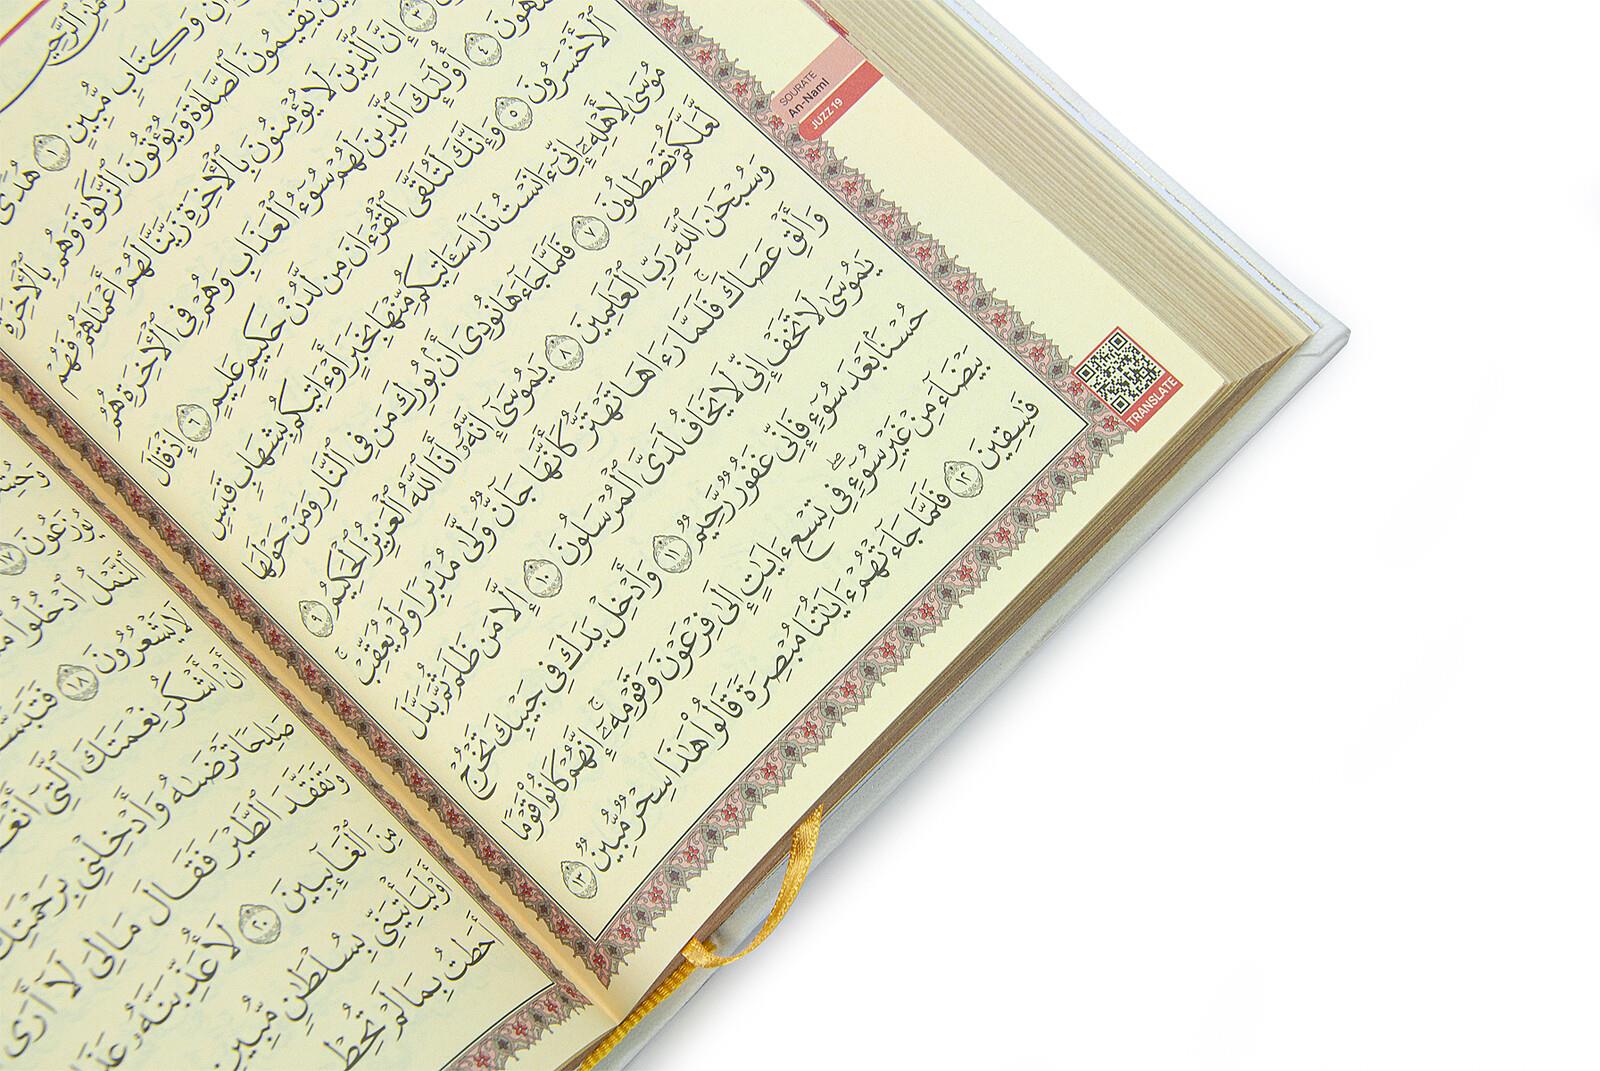 ـمَٰنِ ٱلرَّحِيمِ
ـانِ وَكِتَابٍ مُّبِينٍ ١ هُدًى
ـينَ يُقِيمُونَ ٱلصَّلَوٰةَ وَيُؤْتُونَ ٱلزَّكَوٰةَ وَهُم بِٱلْأَخِرَةِ
٣ إِنَّ ٱلَّذِينَ لَا يُؤْمِنُونَ بِٱلْأَخِرَةِ زَيَّنَّا لَهُمْ أَعْمَٰلَهُمْ فَهُمْ
ـمَهُونَ ٤ أُوْلَٰٓئِكَ ٱلَّذِينَ لَهُمْ سُوٓءُ ٱلْعَذَابِ وَهُمْ فِى ٱلْأَخِرَةِ هُمُ
ٱلْأَخْسَرُونَ ٥ وَإِنَّكَ لَتُلَقَّى ٱلْقُرْءَانَ مِن لَّدُنْ حَكِيمٍ عَلِيمٍ ٦ إِذْ قَالَ
مُوسَىٰ لِأَهْلِهِۦٓ إِنِّىٓ ءَانَسْتُ نَارًا سَـَٔاتِيكُم مِّنْهَا بِخَبَرٍ أَوْ ءَاتِيكُم بِشِهَابٍ قَبَسٍ
لَّعَلَّكُمْ تَصْطَلُونَ ٧ فَلَمَّا جَآءَهَا نُودِىَ أَنۢ بُورِكَ مَن فِى ٱلنَّارِ وَمَنْ حَوْلَهَا
وَسُبْحَٰنَ ٱللَّهِ رَبِّ ٱلْعَٰلَمِينَ ٨ يَٰمُوسَىٰٓ إِنَّهُۥٓ أَنَا ٱللَّهُ ٱلْعَزِيزُ ٱلْحَكِيمُ ٩
وَأَلْقِ عَصَاكَ ۚ فَلَمَّا رَءَاهَا تَهْتَزُّ كَأَنَّهَا جَآنٌّ وَلَّىٰ مُدْبِرًا وَلَمْ يُعَقِّبْ ۚ
يَٰمُوسَىٰ لَا تَخَفْ إِنِّى لَا يَخَافُ لَدَىَّ ٱلْمُرْسَلُونَ ١٠ إِلَّا مَن ظَلَمَ ثُمَّ بَدَّلَ
حُسْنًۢا بَعْدَ سُوٓءٍ فَإِنِّى غَفُورٌ رَّحِيمٌ ١١ وَأَدْخِلْ يَدَكَ فِى جَيْبِكَ تَخْرُجْ
بَيْضَآءَ مِنْ غَيْرِ سُوٓءٍ ۖ فِى تِسْعِ ءَايَٰتٍ إِلَىٰ فِرْعَوْنَ وَقَوْمِهِۦٓ ۚ إِنَّهُمْ كَانُوا۟ قَوْمًا
فَٰسِقِينَ ١٢ فَلَمَّا جَآءَتْهُمْ ءَايَٰتُنَا مُبْصِرَةً قَالُوا۟ هَٰذَا سِحْرٌ مُّبِينٌ ١٣
SOURATE
An-Naml
JUZZ 19
TRANSLATE
يُوزَعُونَ ١٧
ٱلنَّمْلُ ٱدْخُلُوا۟
لَا يَشْعُرُونَ ١٨ فَتَبَسَّـ
أَنْ أَشْكُرَ نِعْمَتَكَ ٱلَّتِىٓ أَنْعَـ
صَٰلِحًا تَرْضَىٰهُ وَأَدْخِلْنِى بِرَحْمَتِكَ
وَتَفَقَّدَ ٱلطَّيْرَ فَقَالَ مَالِىَ لَآ أَرَى
مِنَ ٱلْغَآئِبِينَ ٢٠ لَأُعَذِّبَنَّهُۥ عَذَا
أَوْ لَيَأْتِيَنِّى بِسُلْطَٰنٍ مُّبِينٍ
أَحَطتُ بِمَا لَمْ تُحِطْ